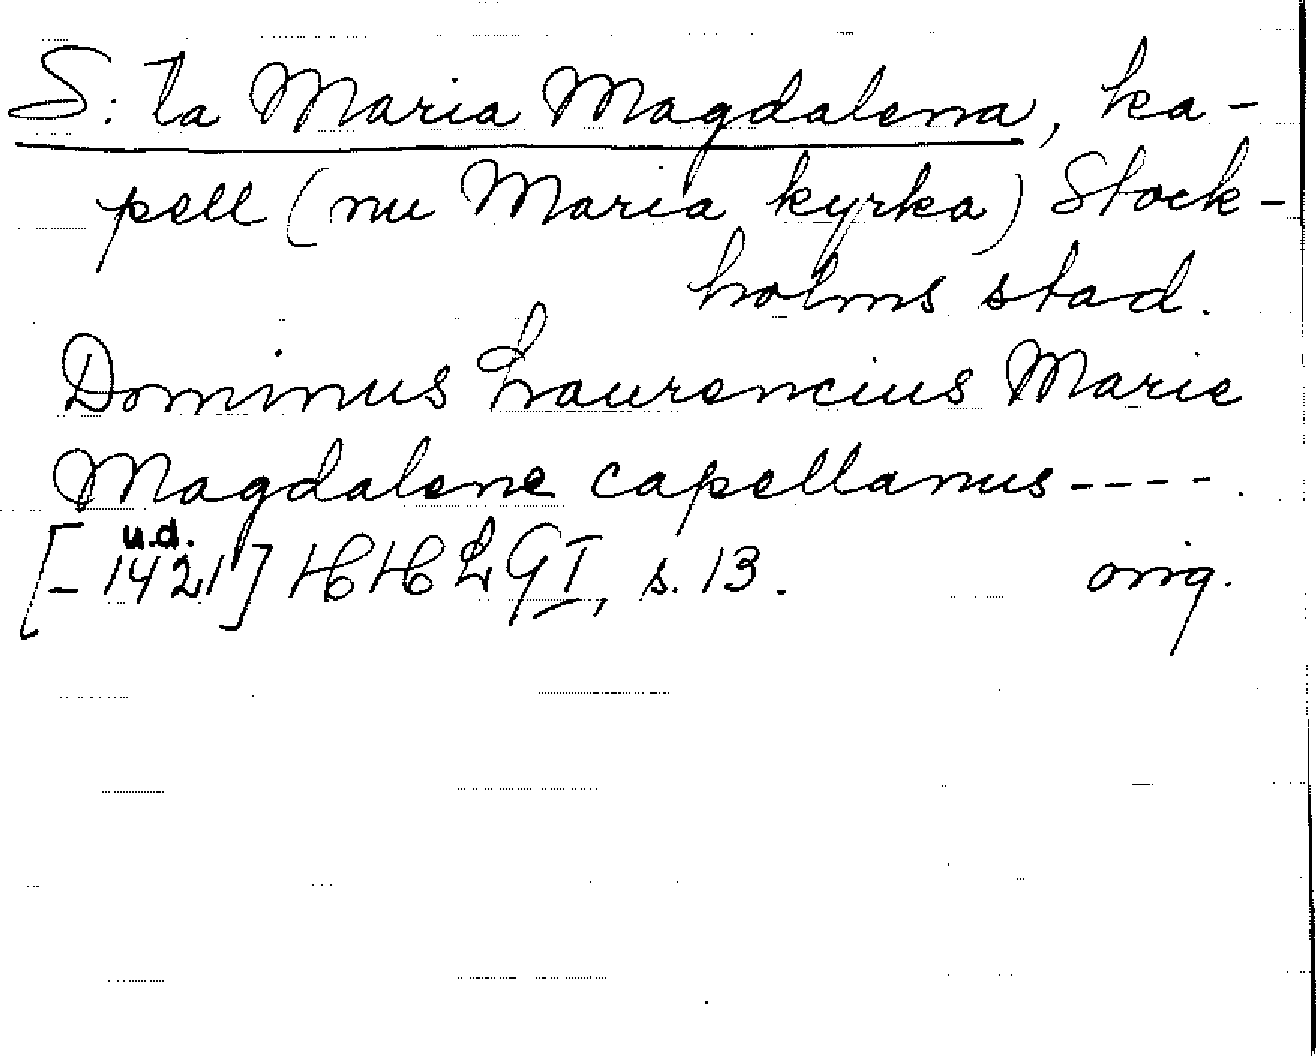 S:ta Maria Magdalena, ka-
pell (nu Maria kyrka) Stock-
holms stad.
Dominus Laurencius Marie
Magdalene capellanus ----.
u.d.
[- 1421] HHLGI, s. 13. orig.